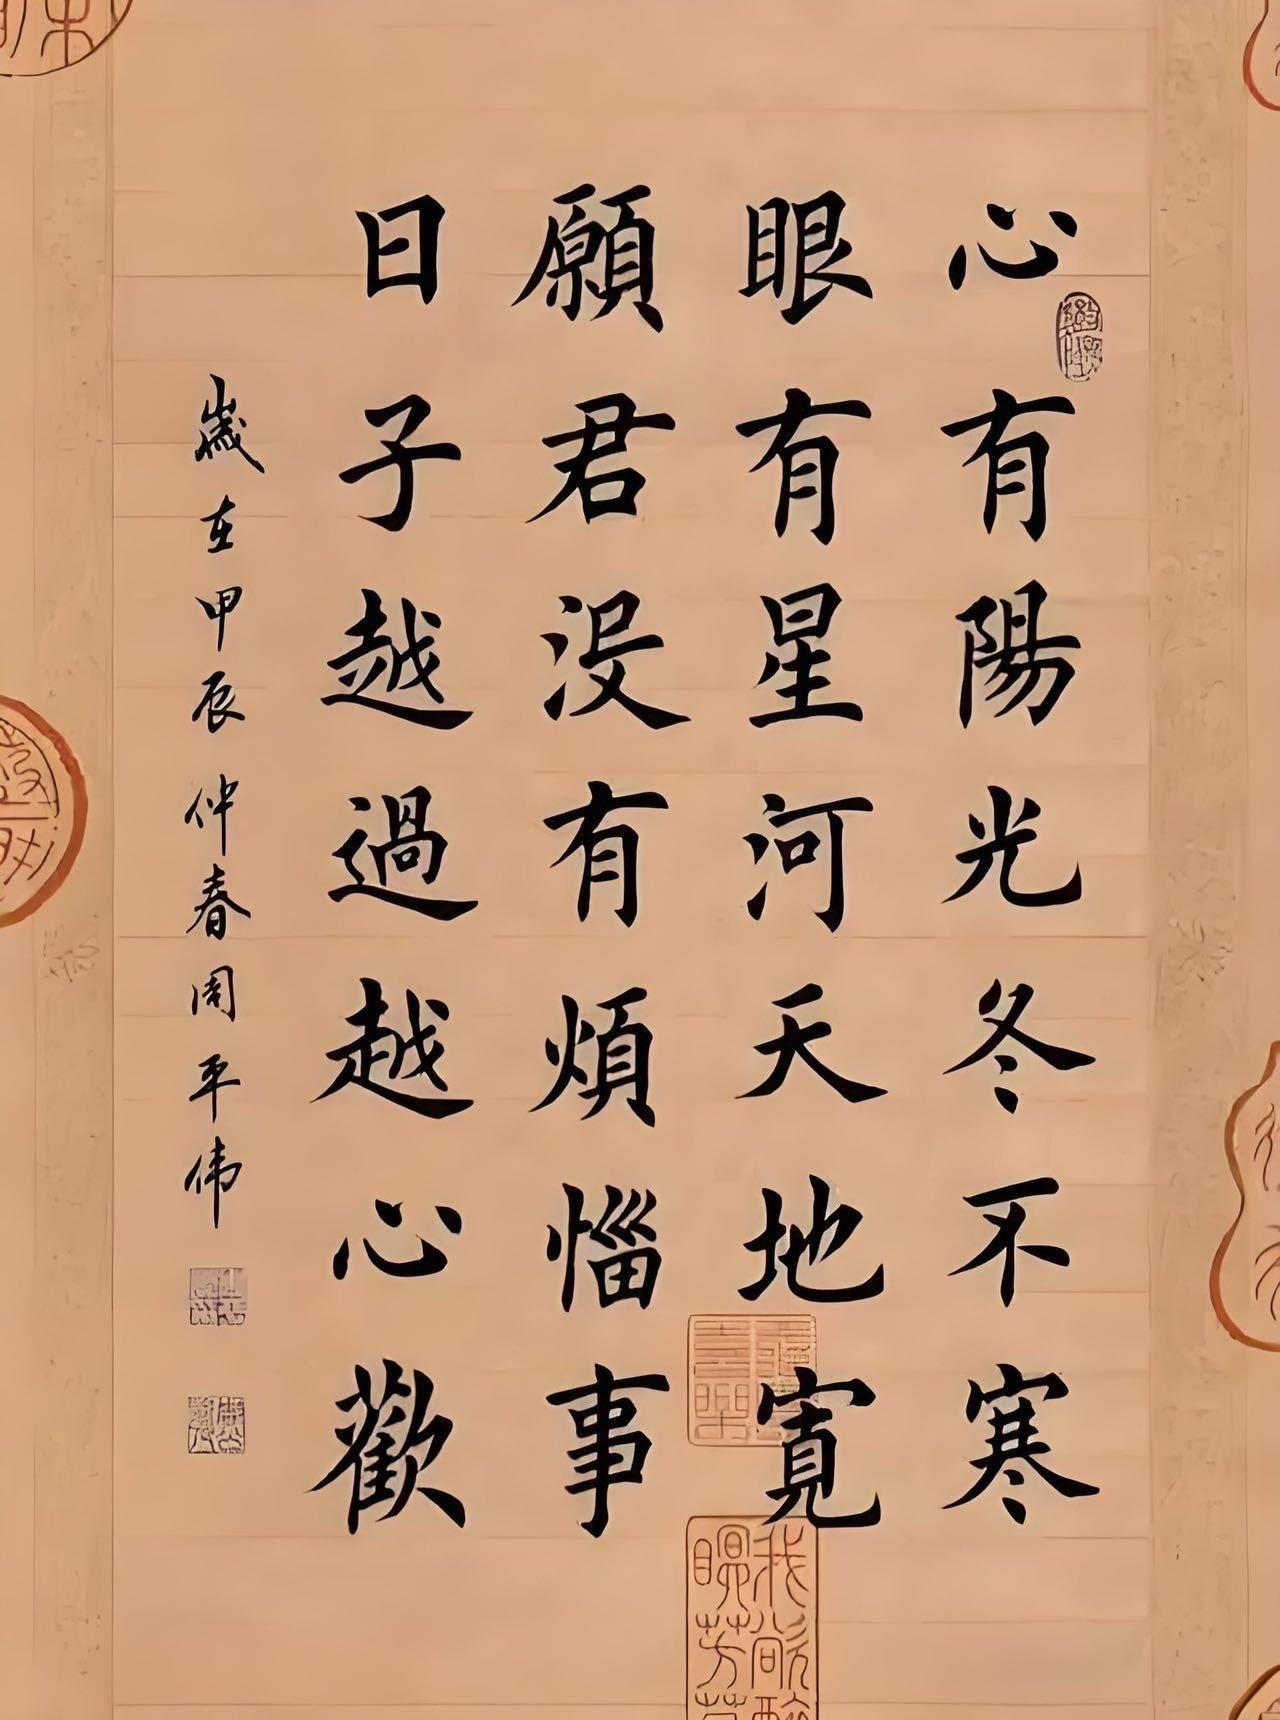 心有陽光冬不寒
眼有星河天地寬
願君没有煩惱事
日子越過越心歡
歲在甲辰仲春周平伟